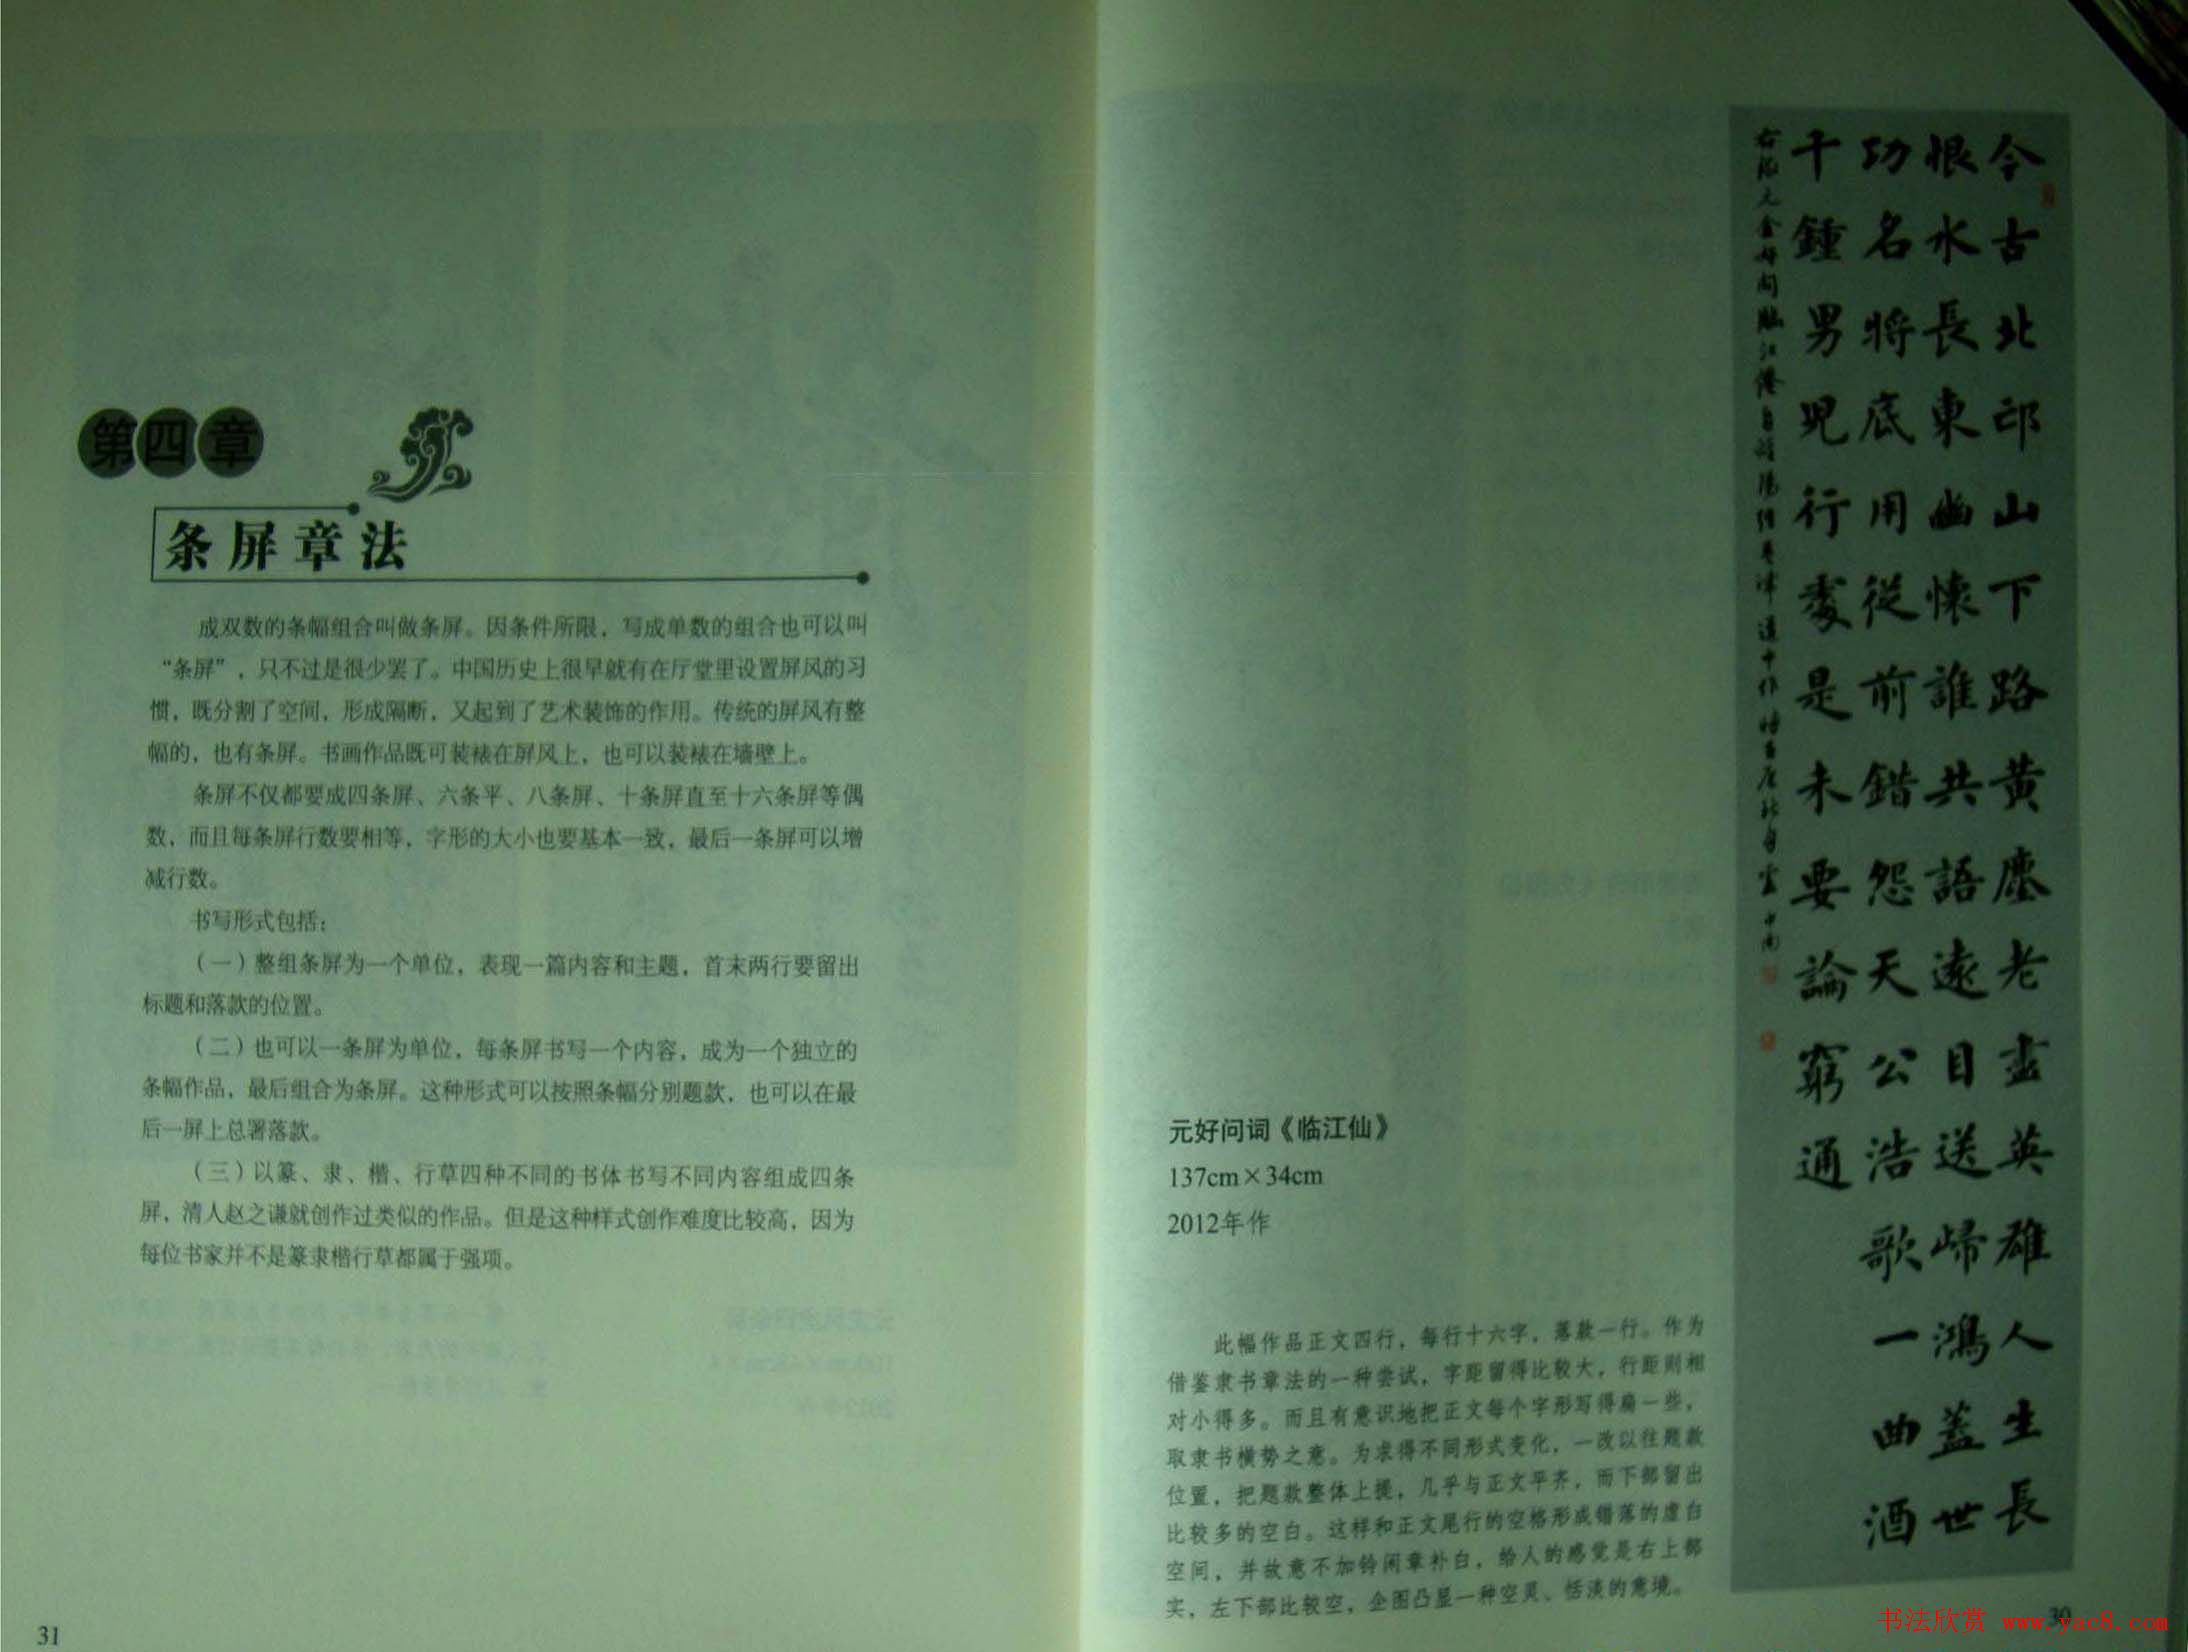 今古北邙山下路黄塵老盡英雄人生長
恨水長東幽懷誰共語遠目送歸鴻蓋世
功名將底用從前錯怨天公浩歌一曲酒
千鍾男兒行處是未要論窮通
右錄元金好问臨江僊自洛陽往孟津道中作
元好问词《临江仙》
137cm×34cm
2012年作
此幅作品正文四行，每行十六字，落款一行。作为
借鉴隶书章法的一种尝试，字距留得比较大，行距则相
对小得多。而且有意识地把正文每个字形写得扁一些，
取隶书横势之意。为求得不同形式变化，一改以往题款
位置，把题款整体上提，几乎与正文平齐，而下部留出
比较多的空白。这样和正文尾行的空格形成错落的虚白
空间，并故意不加钤闲章补白，给人的感觉是右上部
实，左下部比较空，企图凸显一种空灵、恬淡的意境。
30
第四章
条屏章法
成双数的条幅组合叫做条屏。因条件所限，写成单数的组合也可以叫
“条屏”，只不过是很少罢了。中国历史上很早就有在厅堂里设置屏风的习
惯，既分割了空间，形成隔断，又起到了艺术装饰的作用。传统的屏风有整
幅的，也有条屏。书画作品既可装裱在屏风上，也可以装裱在墙壁上。
条屏不仅都要成四条屏、六条平、八条屏、十条屏直至十六条屏等偶
数，而且每条屏行数要相等，字形的大小也要基本一致，最后一条屏可以增
减行数。
书写形式包括：
（一）整组条屏为一个单位，表现一篇内容和主题，首末两行要留出
标题和落款的位置。
（二）也可以一条屏为单位，每条屏书写一个内容，成为一个独立的
条幅作品，最后组合为条屏。这种形式可以按照条幅分别题款，也可以在最
后一屏上总署落款。
（三）以篆、隶、楷、行草四种不同的书体书写不同内容组成四条
屏，清人赵之谦就创作过类似的作品。但是这种样式创作难度比较高，因为
每位书家并不是篆隶楷行草都属于强项。
31
书法欣赏 www.yac8.com